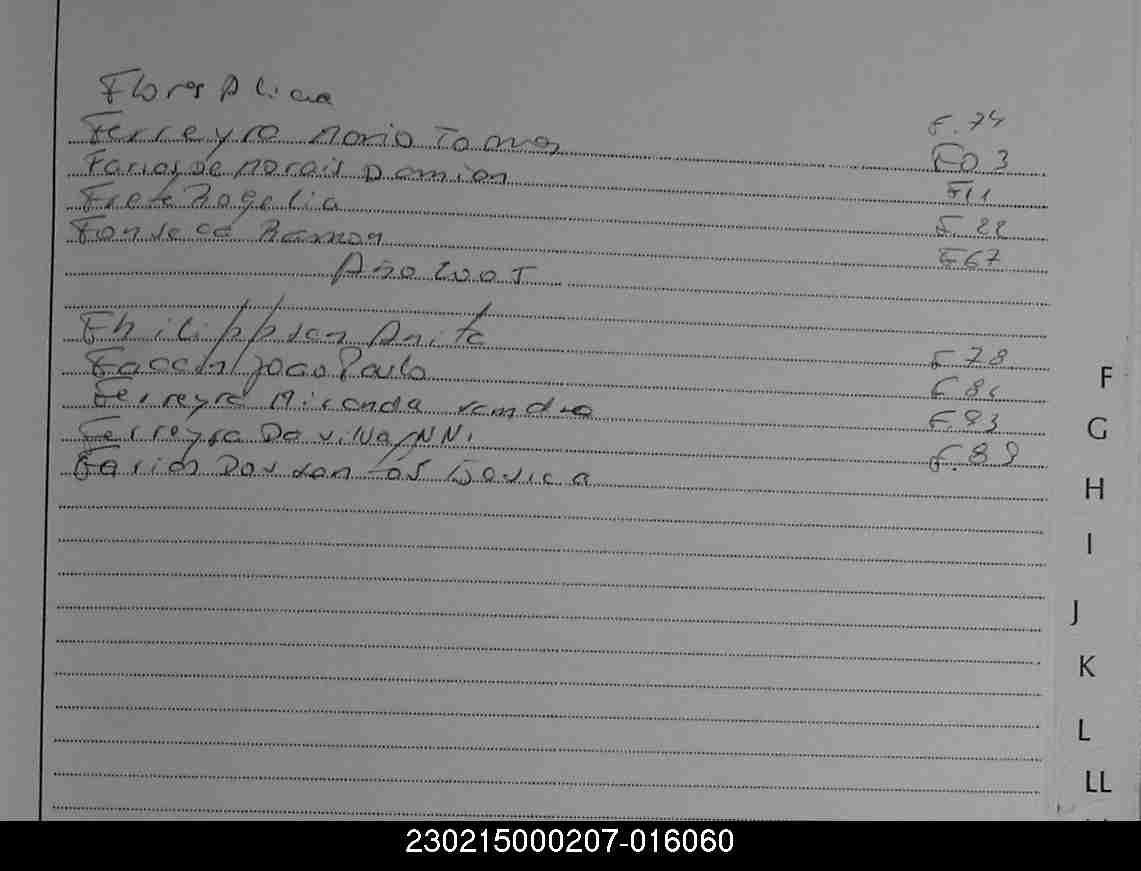 Flores Alicia F.74
Ferreyra Mario Tomas F03
Farias de Morais Damian F11
Frete Rogelia F.22
Fonseca Ramon F67
Año
Philippsen Anita F.78
Faccin Joao Paulo F.86
Ferreyra Miranda F.93
Ferreyra Da Silva/NN. F.89
Farias Dos Santos
F
G
H
I
J
K
L
LL
230215000207-016060